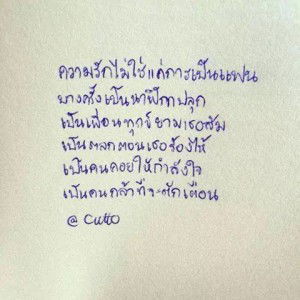 ความรักไม่ใช่แค่การเป็นแฟน
บางครั้งเป็นนาฬิกาปลุก
เป็นเพื่อนทุกข์ยามเธอล้ม
เป็นตลกตอนเธอร้องไห้
เป็นคนคอยให้กำลังใจ
เป็นคนกล้าที่จะตักเตือน
@ Cutto